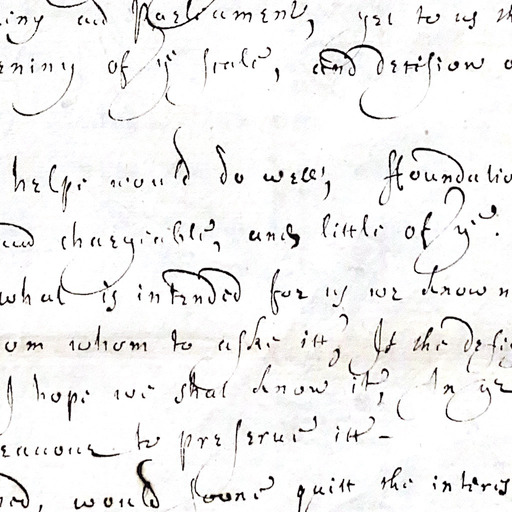 and Parliament, yet to us th
erning of ye scale, and decision o
helpe would do well, ffoundatio
and chargeable, and little of ye.
what is intended for us we know n
om whom to aske itt, If the desig
I hope we shal know it, In ye
eauour to preserue itt -
ned, would soone quitt the interes